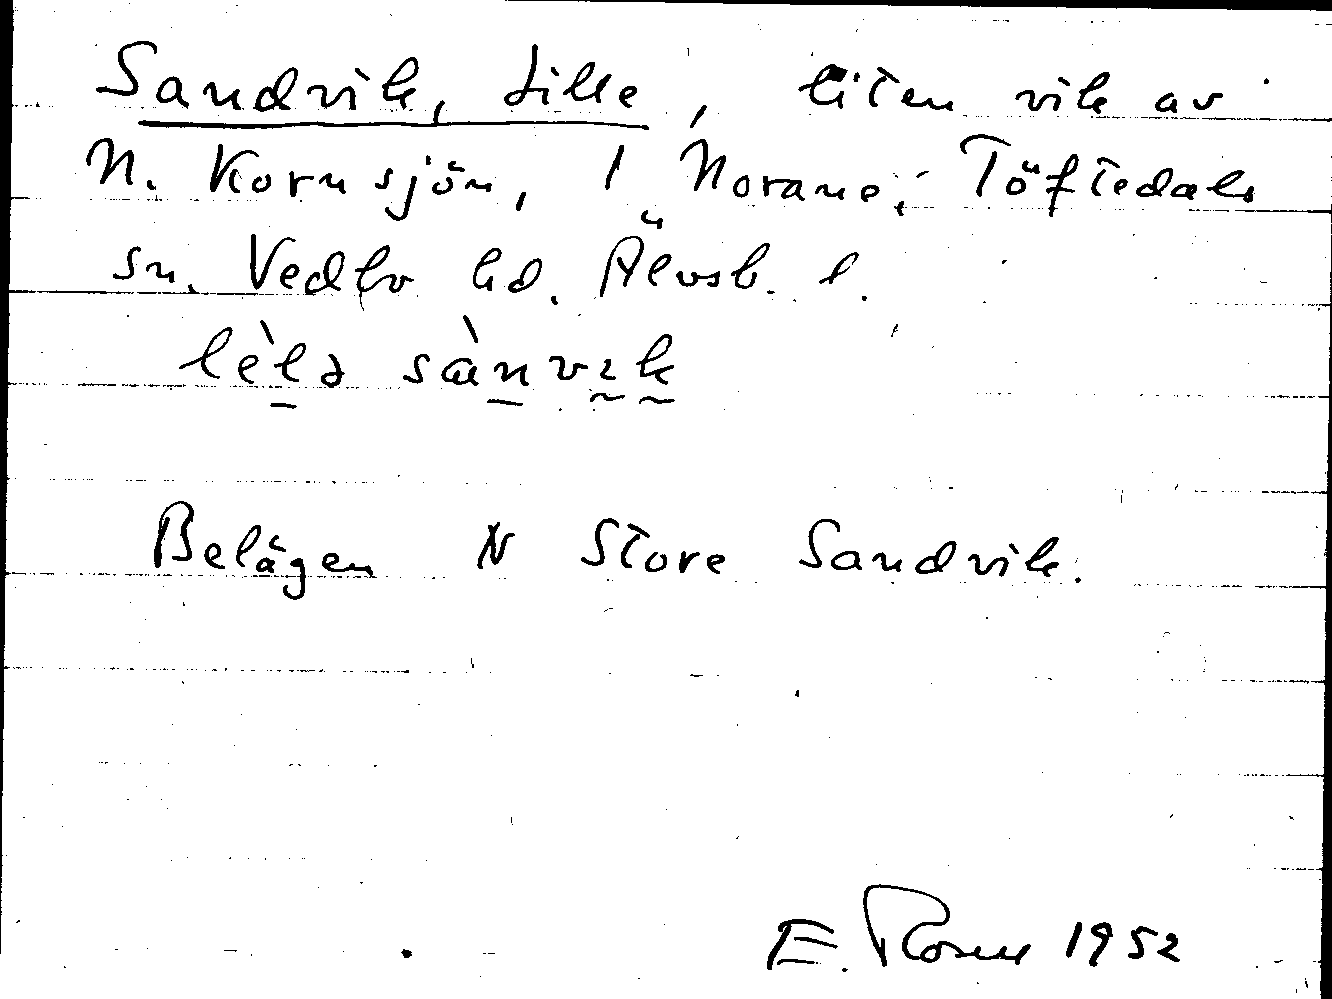 Sandvik, Lille, liten vik av
N. Kornsjön, 1 Norane, Töftedals
sn. Vedbo hd. Älvsb. l.
lèlə sànvɪk
Belägen N Store Sandvik.
E. Rosen 1952